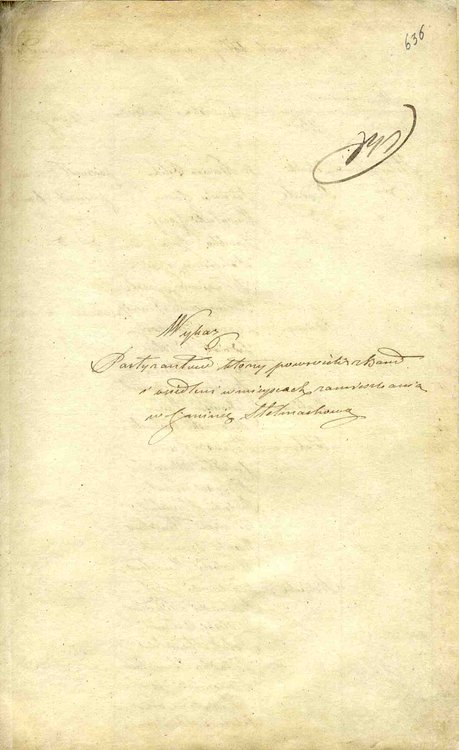 636
Wykaz
Partyzantów którzy powrócili z band
i osiedleni w miejscach zamieszkania
w Gminie Stelmachowo